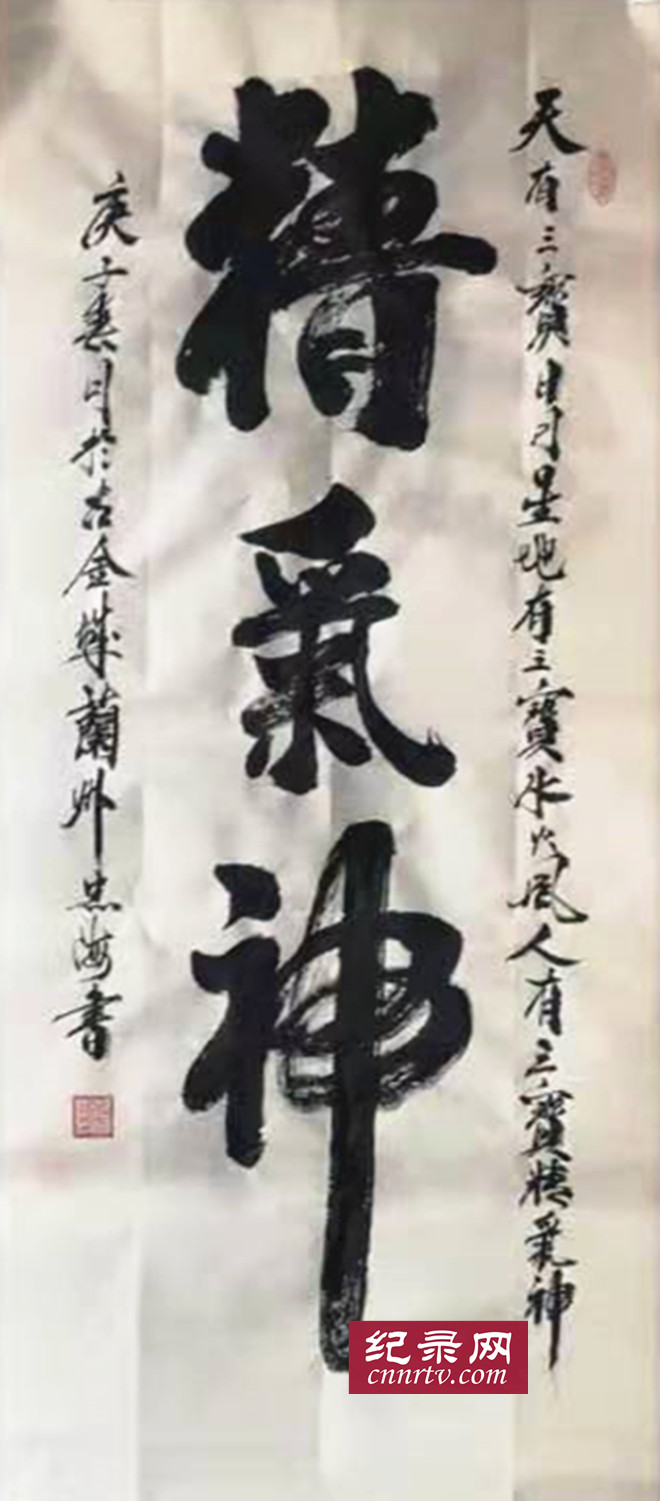 天有三寶日月星地有三寶水火風人有三寶精氣神
精氣神
庚子春月於古金城蘭州忠海書
纪录网
cnnrtv.com